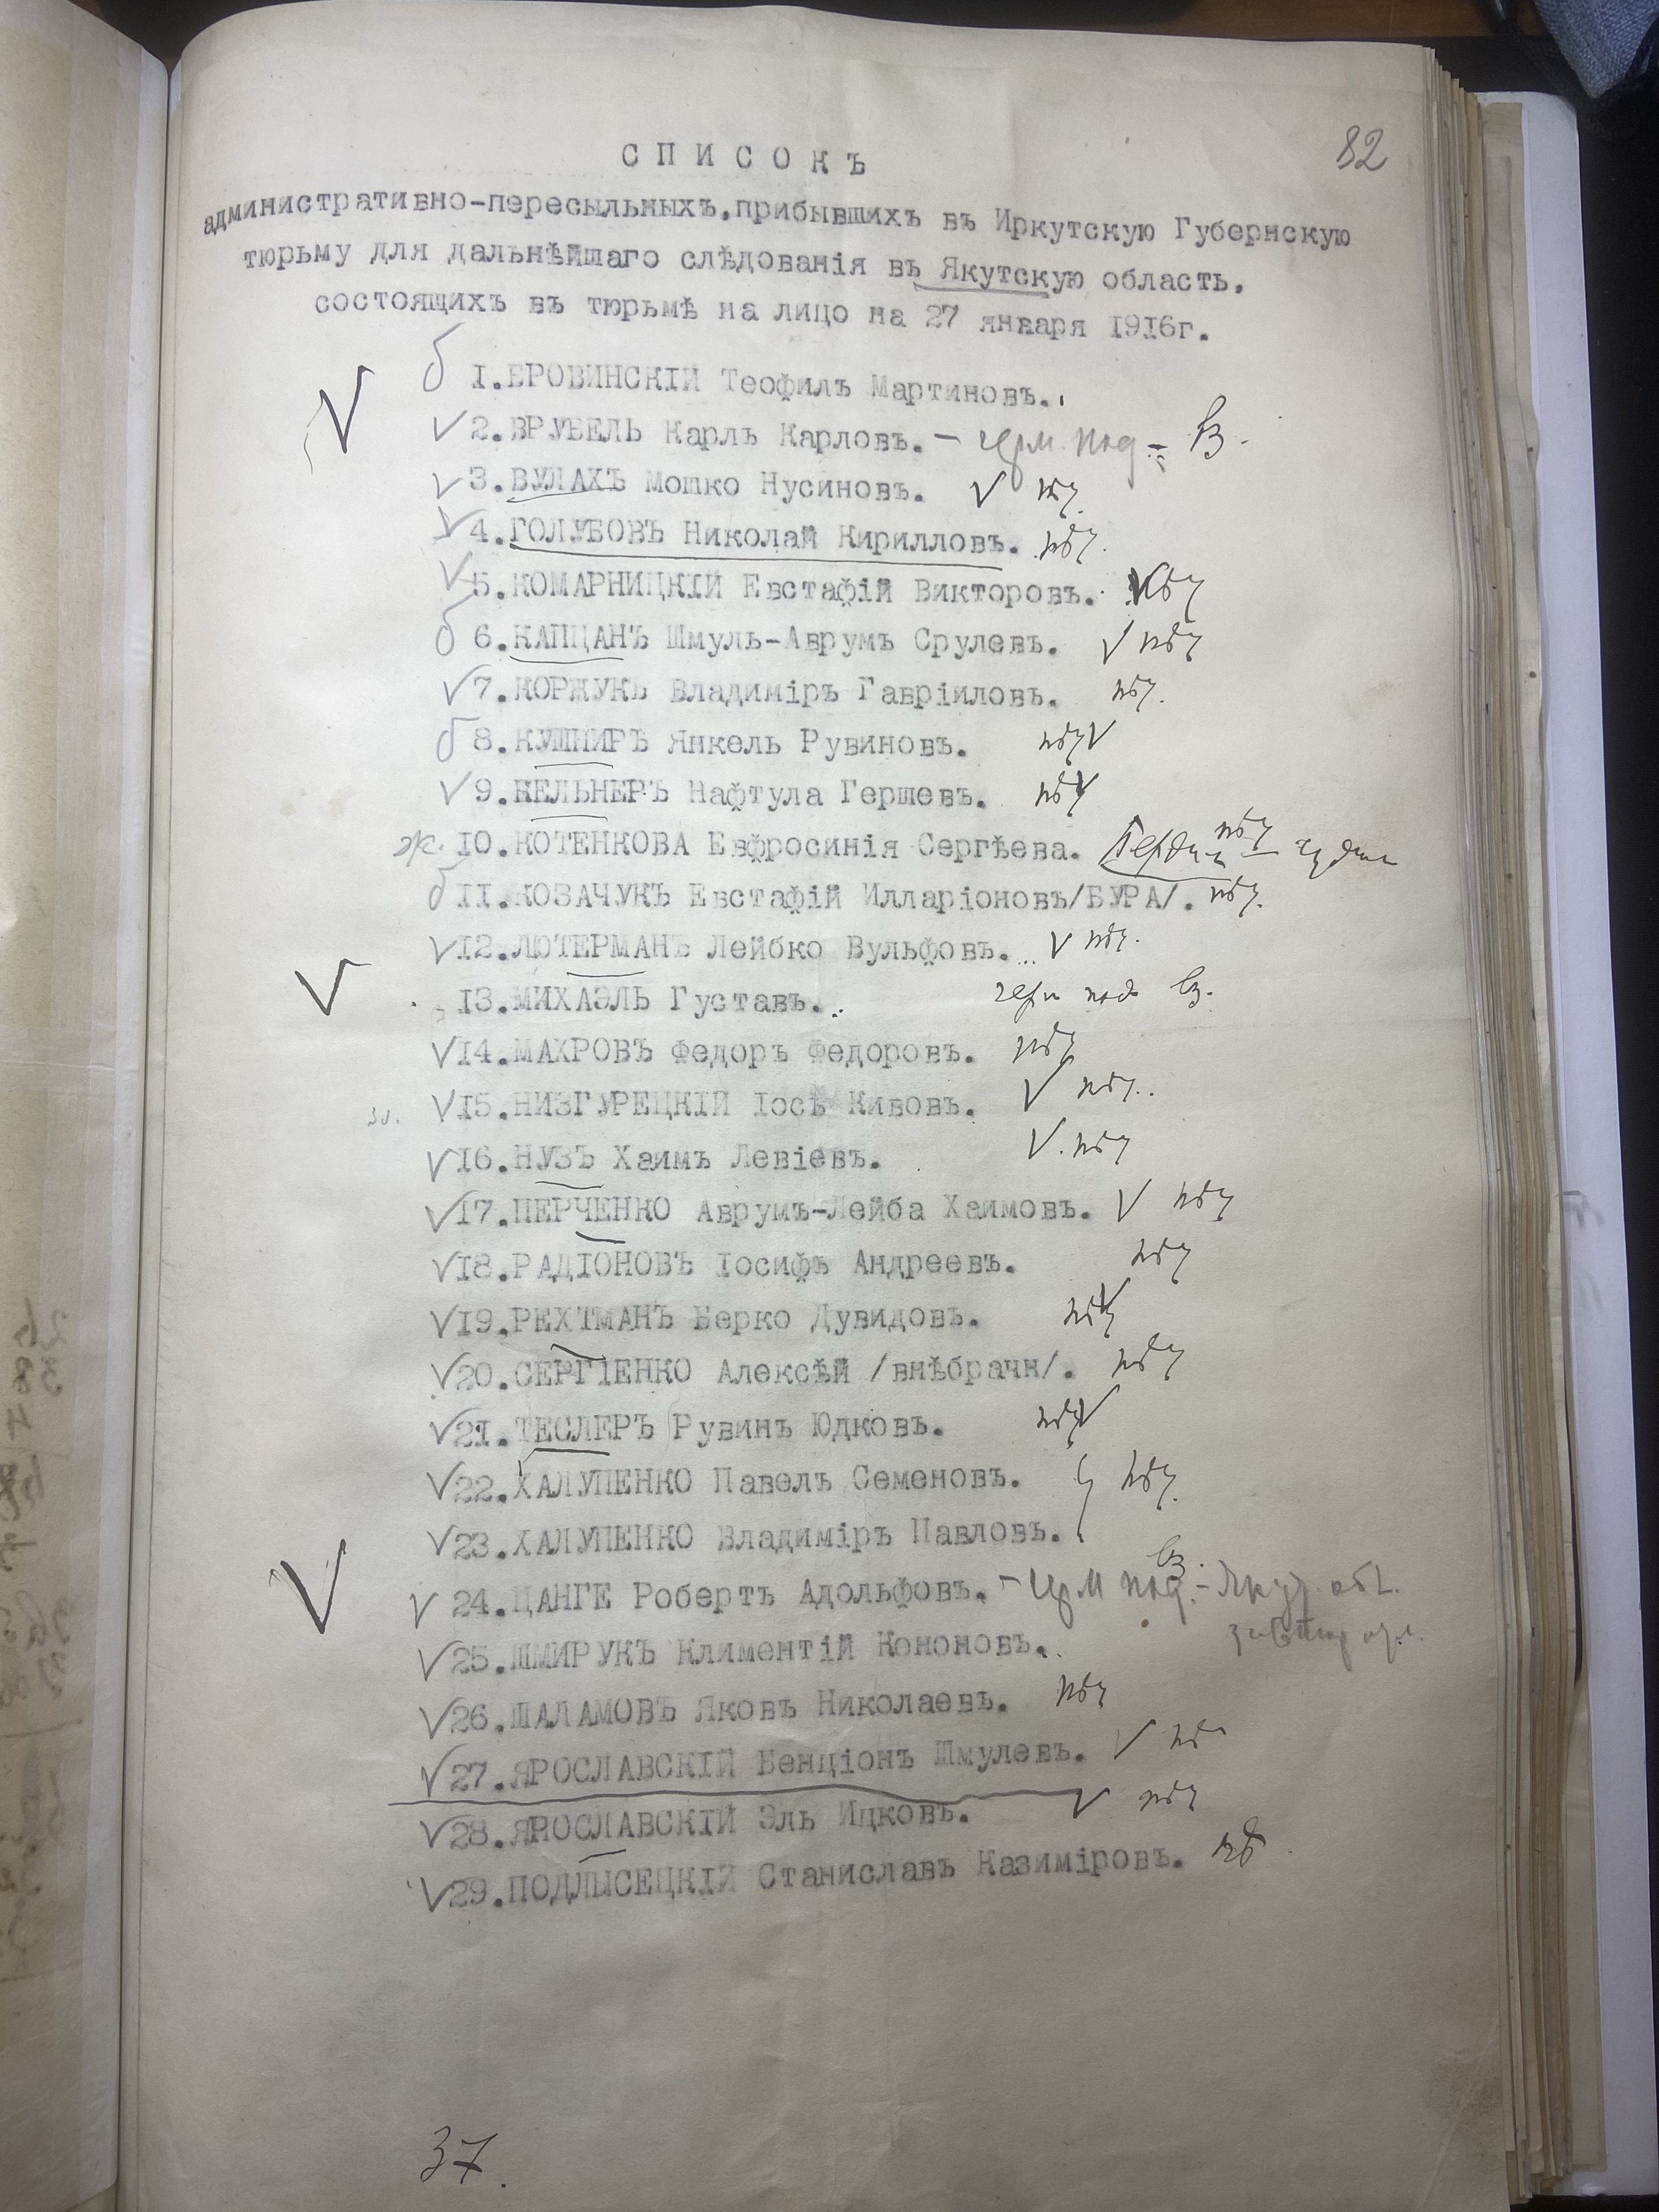 82
СПИСОКЪ
административно-пересыльныхъ, прибывшихъ въ Иркутскую Губернскую
тюрьму для дальнѣйшаго слѣдованія въ Якутскую область,
состоящихъ въ тюрьмѣ на лицо на 27 января 1916г.
б I. БРОВИНСКІЙ Теофилъ Мартиновъ.
2. ВРУБЕЛЬ Карлъ Карловъ. – герм. под –
3. ВУЛАХЪ Мошко Нусиновъ.
4. ГОЛУБОВЪ Николай Кирилловъ.
5. КОМАРНИЦКІЙ Евстафій Викторовъ.
б 6. КАПЦАНЪ Шмуль-Аврумъ Срулевъ.
7. КОРЖУКЪ Владиміръ Гавріиловъ.
б 8. КУШНИРЪ Янкель Рувиновъ.
9. КЕЛЬНЕРЪ Нафтула Гершевъ.
ж. 10. КОТЕНКОВА Евфросинія Сергѣева.
б 11. КОВАЧУКЪ Евстафій Илларіоновъ/БУРА/.
12. ЛЮТЕРМАНЪ Лейбко Вульфовъ.
13. МИХАЭЛЬ Густавъ. герм под
14. МАХРОВЪ Федоръ Федоровъ.
15. НИЗГУРЕЦКІЙ Іось Кивовъ.
16. НУЗЪ Хаимъ Левіевъ.
17. ПЕРЧЕНКО Аврумъ-Лейба Хаимовъ.
18. РАДІОНОВЪ Іосифъ Андреевъ.
19. РЕХТМАНЪ Берко Дувидовъ.
20. СЕРГІЕНКО Алексѣй /внѣбрачн/.
21. ТЕСЛЕРЪ Рувинъ Юдковъ.
22. ХАЛУПЕНКО Павелъ Семеновъ.
23. ХАЛУПЕНКО Владиміръ Павловъ.
24. ЦАНГЕ Робертъ Адольфовъ. – герм под. – Якут. обл.
25. ШМИРУКЪ Климентій Кононовъ.
26. ШАЛАМОВЪ Яковъ Николаевъ.
27. ЯРОСЛАВСКІЙ Бенціонъ Шмулевъ.
28. ЯРОСЛАВСКІЙ Эль Ицковъ.
29. ПОДЛЫСЕЦКІЙ Станиславъ Казиміровъ.
37.